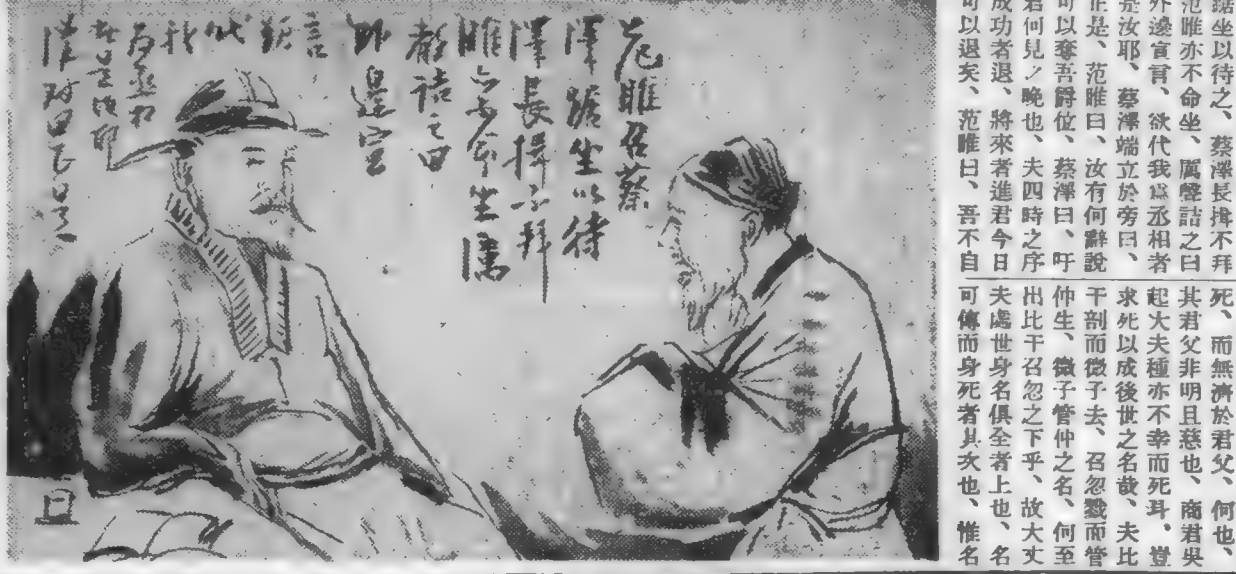 踞坐以待之、蔡澤長揖不拜
范睢亦不命坐、厲聲詰之曰
外邊宣言、欲代我爲丞相者
是汝耶、蔡澤端立於旁曰、
正是、范睢曰、汝有何辭說
可以奪吾爵位、蔡澤曰、吁
君何見ノ晚也、夫四時之序
成功者退、將來者進君今日
可以退矣、范睢曰、吾不自
死、而無濟於君父、何也、
其君父非明且慈也、商君吳
起大夫種亦不幸而死耳、豈
求死以成後世之名哉、夫比
干剖而微子去、召忽戮而管
仲生、微子管仲之名、何至
出比干召忽之下乎、故大丈
夫處世身名俱全者上也、名
可傳而身死者其次也、惟名
范睢召蔡
澤踞坐以待
澤長揖不拜
睢亦不命坐厲
聲詰之曰
外邊宣
言
欲
代
我
為丞相
者是汝耶
澤對曰正是